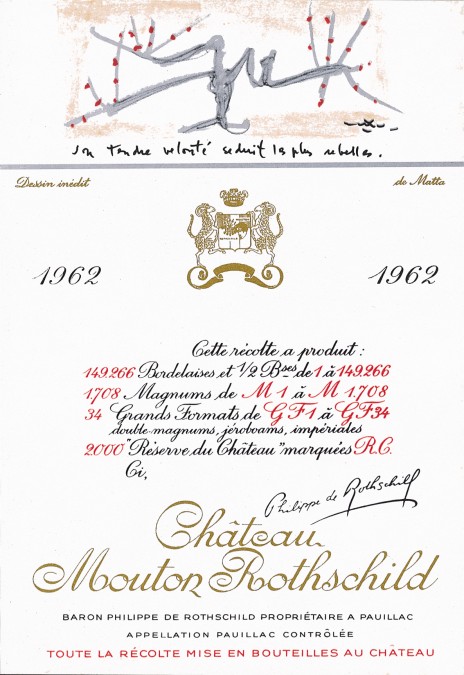 son tendre velouté séduit les plus rebelles.
Dessin inédit
de Matta
1962
1962
Cette récolte a produit :
149.266 Bordelaises et 1/2 Bses de 1 à 149.266
1708 Magnums de M 1 à M 1.708
34 Grands Formats de G F 1 à G F 34
double-magnums, jéroboams, impériales
2000 "Réserve du Château" marquées R.C.
Ci,
Philippe de Rothschild
Château
Mouton Rothschild
BARON PHILIPPE DE ROTHSCHILD PROPRIÉTAIRE A PAUILLAC
APPELLATION PAUILLAC CONTRÔLÉE
TOUTE LA RÉCOLTE MISE EN BOUTEILLES AU CHÂTEAU